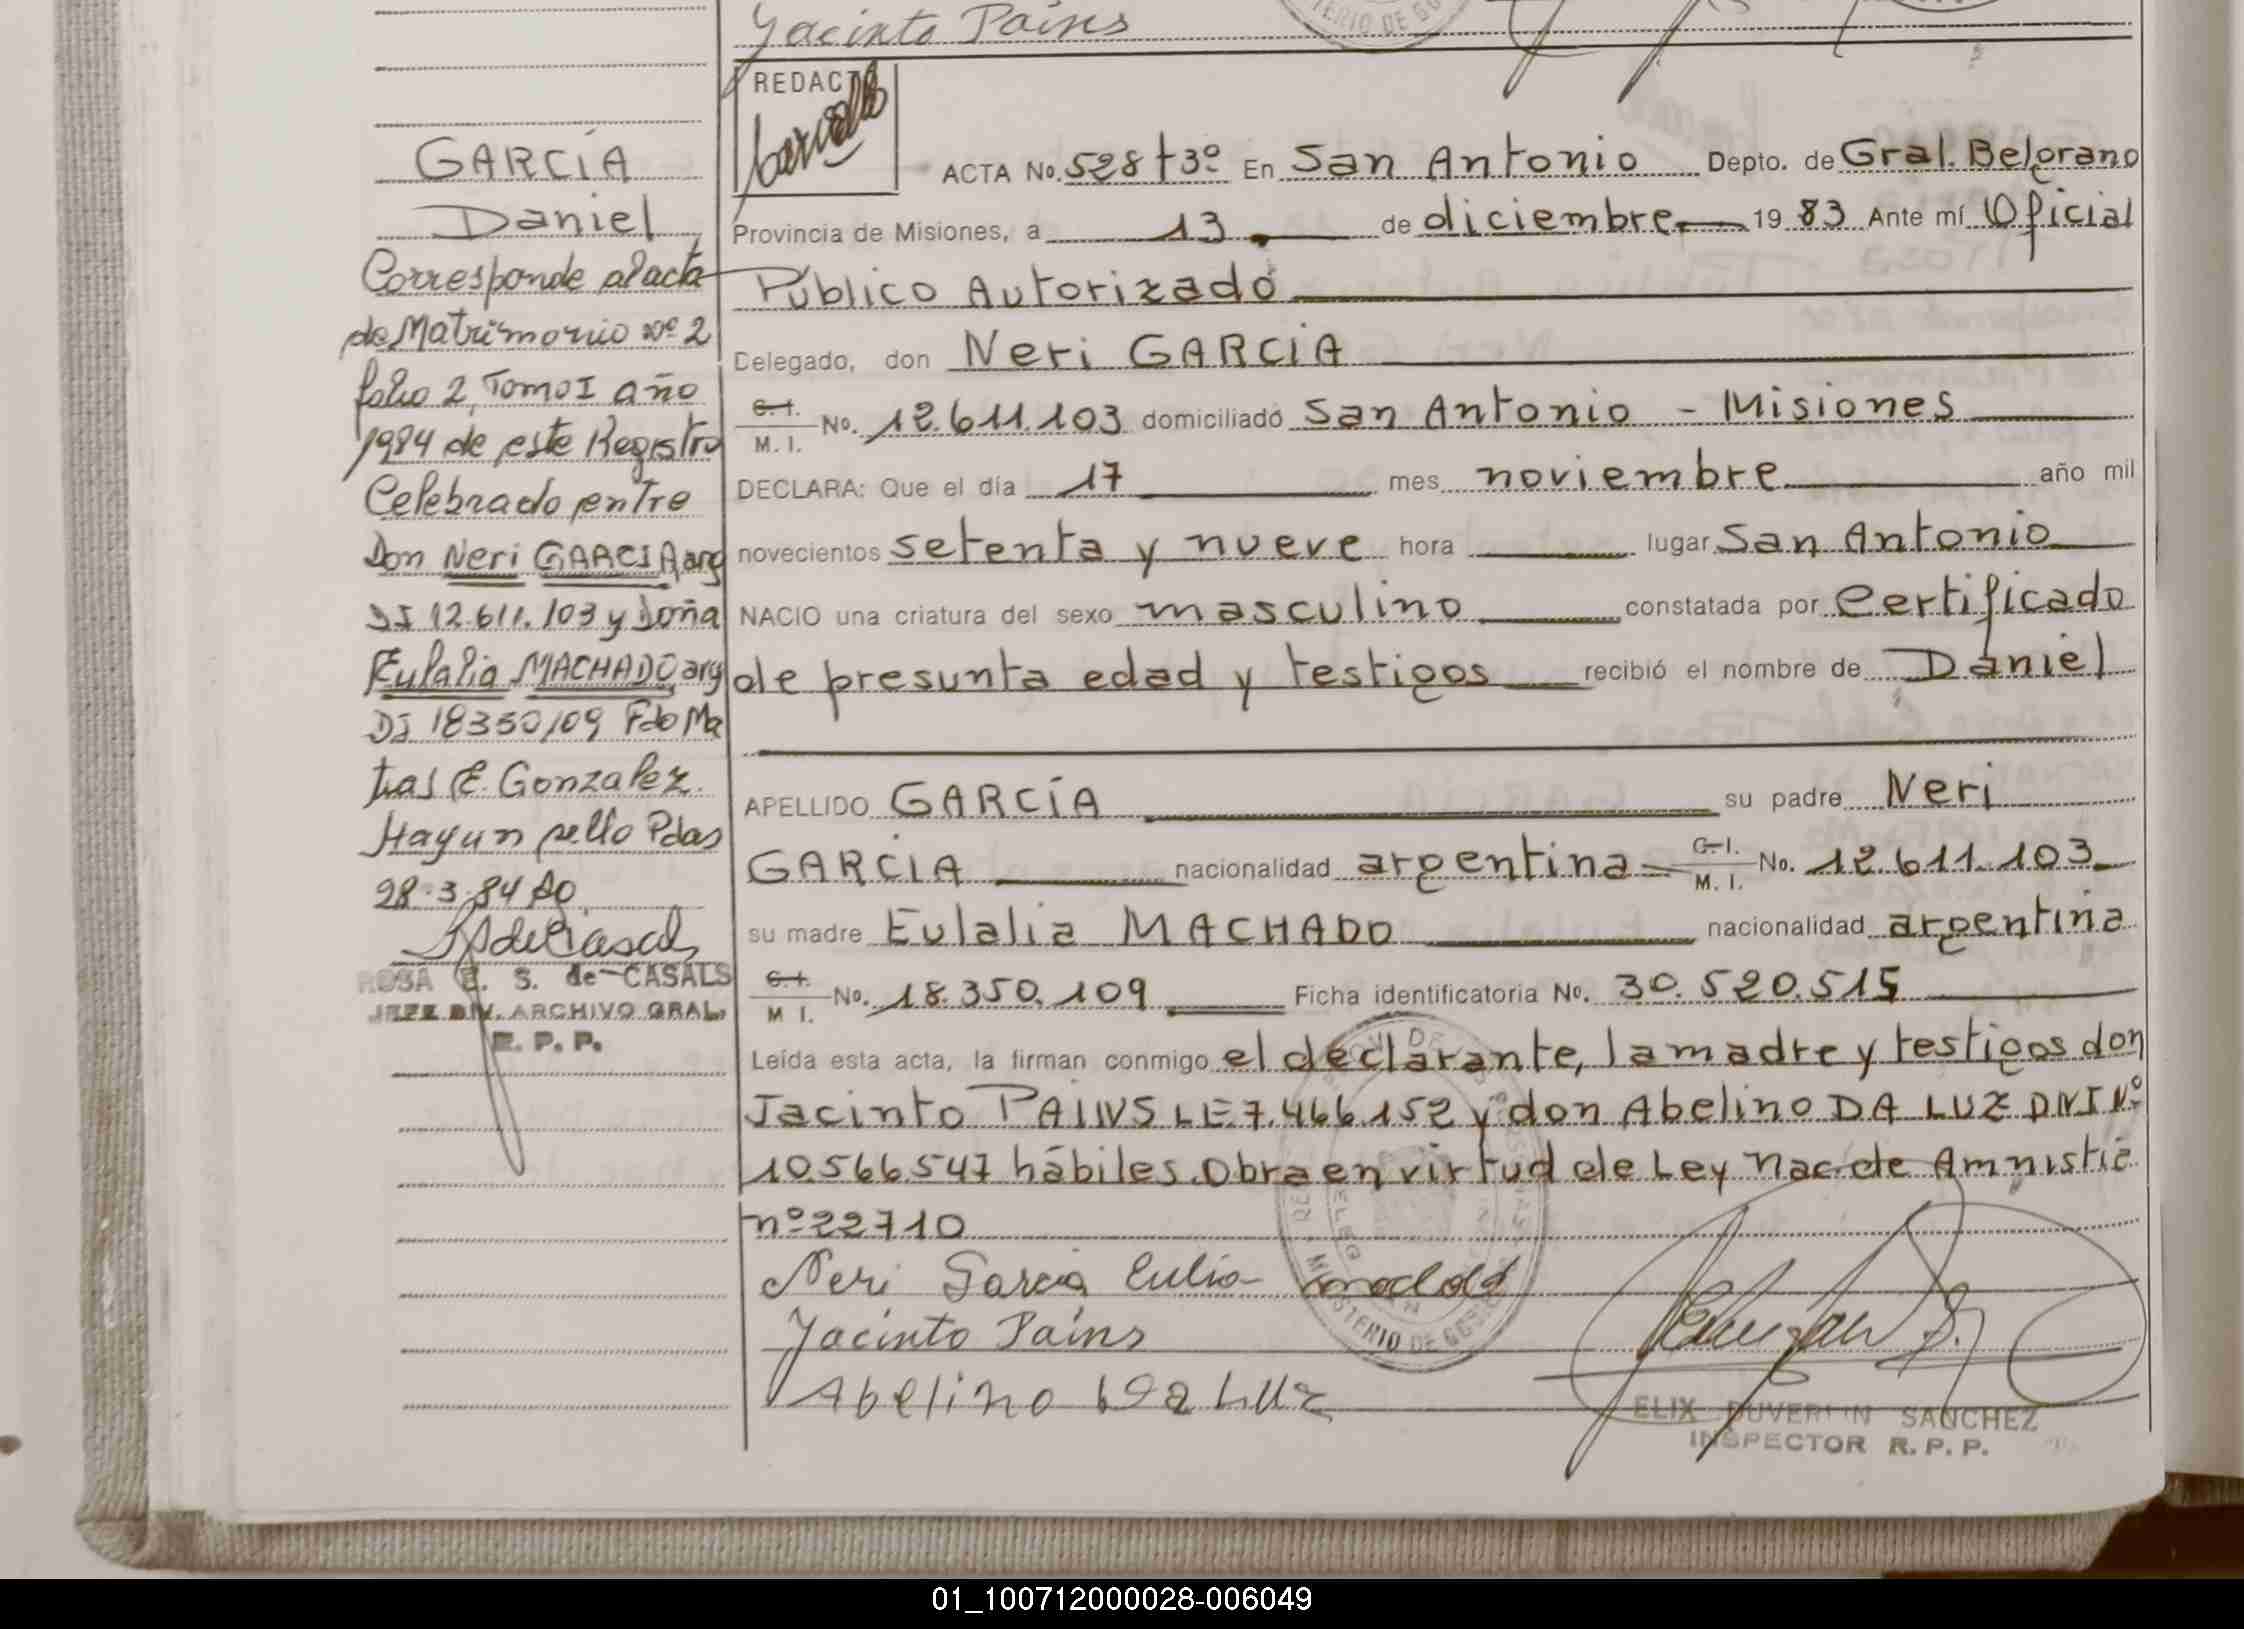 Jacinto Pains
TERIO DE GO
REDACT
GARCÍA
Daniel
Corresponde al acta
de Matrimonio Nº 2
folio 2, Tomo I año
1984 de este Registro
Celebrado entre
Don Neri GARCIA arg
DI 12.611.103 y Doña
Eulalia MACHADO arg
DI 18350109 Fdo Ma
tias E. Gonzalez.
Hay un sello Pdas
28.3.84
ROSA E. S. de CASALS
JEFE DIV. ARCHIVO GRAL.
R. P. P.
ACTA No. 528 T3º En San Antonio Depto. de Gral. Belgrano
Provincia de Misiones, a 13 de diciembre 19 83 Ante mí Oficial
Público Autorizado
Delegado, don Neri GARCIA
C. I.
M. I. No. 12.611.103 domiciliado San Antonio - Misiones
DECLARA: Que el día 17 mes noviembre año mil
novecientos setenta y nueve hora lugar San Antonio
NACIO una criatura del sexo masculino constatada por Certificado
de presunta edad y testigos recibió el nombre de Daniel
APELLIDO GARCÍA su padre Neri
GARCIA nacionalidad argentina C. I.
M. I. No. 12.611.103
su madre Eulalia MACHADO nacionalidad argentina
C. I.
M I. No. 18.350.109 Ficha identificatoria No. 30.520.515
Leída esta acta, la firman conmigo el declarante, la madre y testigos don
Jacinto PAINS LE 7.466152 y don Abelino DA LUZ DNI Nº
10.566.547 hábiles. Obra en virtud de Ley Nac. de Amnistia
nº 22710
Neri Garcia Eulia machado
Jacinto Pains
Abelino Da Luz
MINISTERIO DE GOBI
ELIX DUVERLIN SANCHEZ
INSPECTOR R. P. P.
01_100712000028-006049